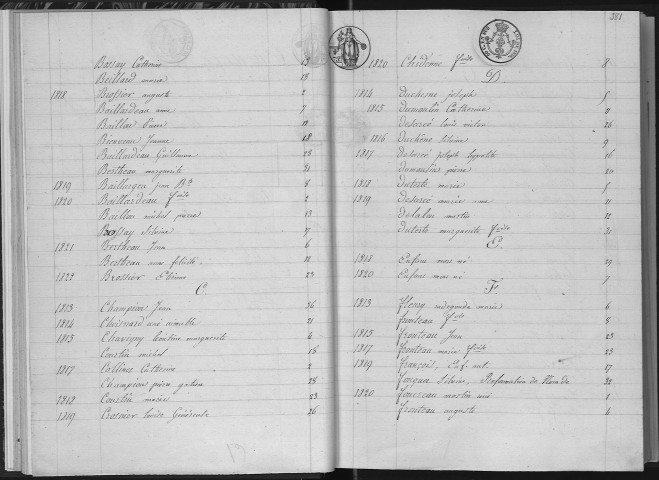 Bossay Catherine 13
Beillard marie 18
1818 Brossior auguste 2
Baillardeau anne 7
Baillar Pierre 11
Bienvenu Jeanne 18
Baillardeau Guillaume 23
Bertheau marguerite 31
1819 Baillargea jean Bte 8
1820 Baillardeau 2
Baillar michel pierre 13
Bossay Silvine 17
1821 Bertheau Jean 6
Bertheau anne felicité 12
1822 Brossior Etienne 23
C.
1813 Champion Jean 26
1814 Choisnard née 21
1815 Chavigny marguerite 6
Courtin michel 18
1817 Collines Catherine 2
Champion pierre 28
1818 Courtin marie 23
1819 Crosnier Louise Généreuse 26
381
1820 Chedenne 8
D.
1814 Duchesne joseph 5
1815 Dumoulin Catherine 11
Desarcé louis victor 26
1816 Duchêne Silvine 9
1817 Desarcé joseph hypolite 26
Dumoulin pierre 20
1818 Duterte marie 5
1819 Desarcé marie anne 11
Delaleu martin 12
Duterte marguerite 31
E.
1818 Enfant mort né 29
1820 Enfant mort né 7
F
1813 Fleury marie 6
Funteau 8
1815 Frouteau Jean 23
1817 Frouteau marie 23
1819 François, Enf. nat. 17
Silvine, 32
1820 martin 1
Frouteau auguste 4